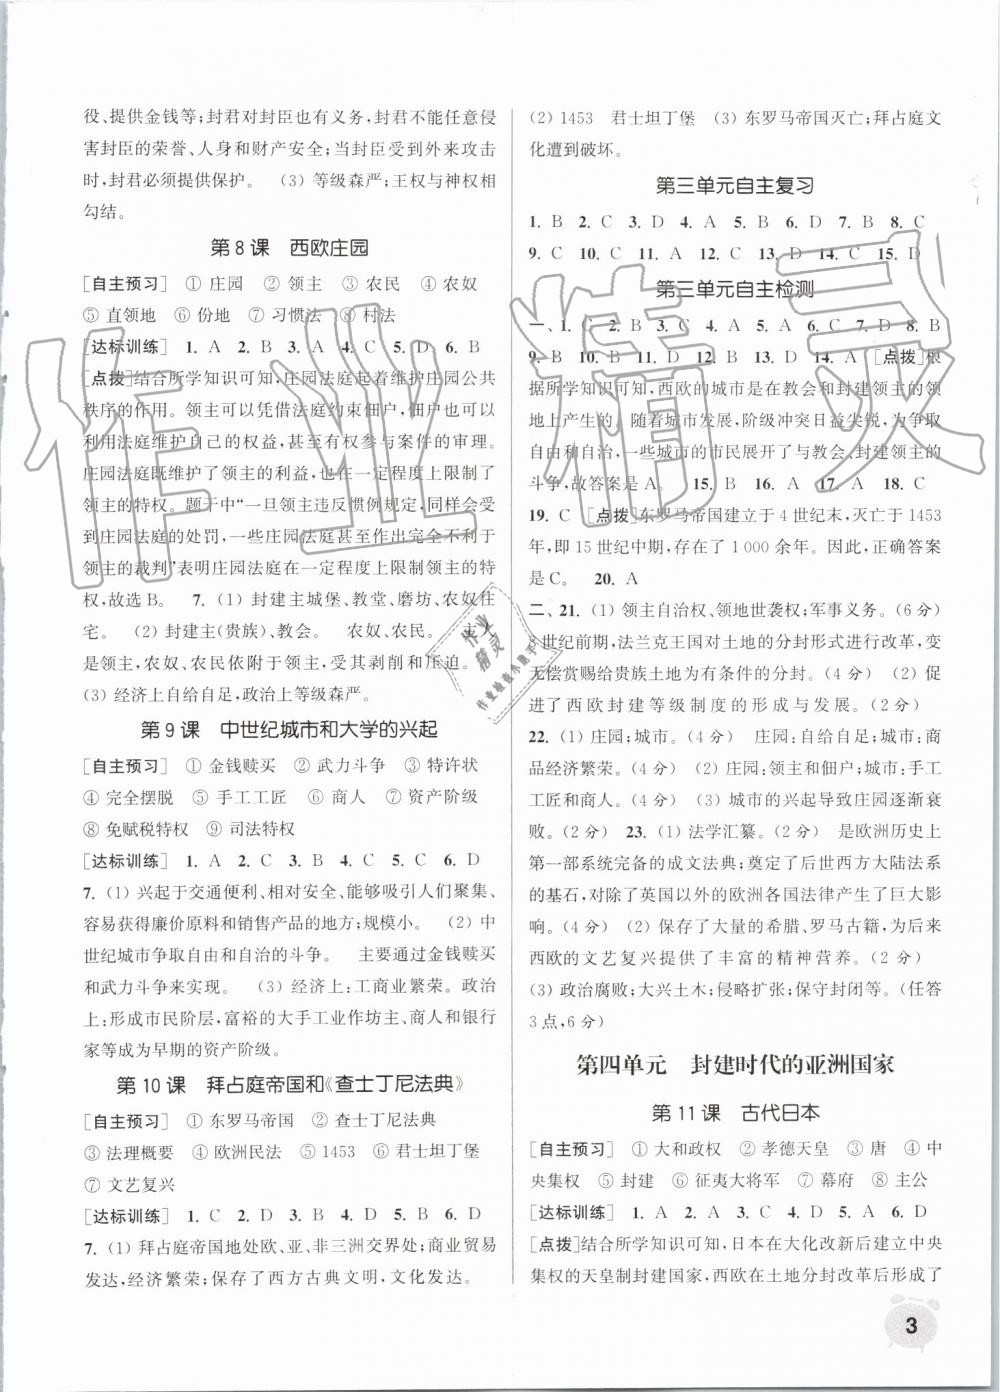 役、提供金钱等;封君对封臣也有义务,封君不能任意侵
害封臣的荣誉、人身和财产安全;当封臣受到外来攻击
时,封君必须提供保护。 (3) 等级森严;王权与神权相
勾结。
第 8 课 西欧庄园
[自主预习] ① 庄园 ② 领主 ③ 农民 ④ 农奴
⑤ 直领地 ⑥ 份地 ⑦ 习惯法 ⑧ 村法
[达标训练] 1. A 2. B 3. A 4. C 5. D 6. B
[点拨]结合所学知识可知,庄园法庭起着维护庄园公共
秩序的作用。领主可以凭借法庭约束佃户,佃户也可以
利用法庭维护自己的权益,甚至有权参与案件的审理。
庄园法庭既维护了领主的利益,也在一定程度上限制了
领主的特权。题干中“一旦领主违反惯例规定,同样会受
到庄园法庭的处罚,一些庄园法庭甚至作出完全不利于
领主的裁判”表明庄园法庭在一定程度上限制领主的特
权,故选 B。 7. (1) 封建主城堡、教堂、磨坊、农奴住
宅。 (2) 封建主(贵族)、教会。 农奴、农民。 主
是领主,农奴、农民依附于领主,受其剥削和压迫。
(3) 经济上自给自足,政治上等级森严。
第 9 课 中世纪城市和大学的兴起
[自主预习] ① 金钱赎买 ② 武力斗争 ③ 特许状
④ 完全摆脱 ⑤ 手工工匠 ⑥ 商人 ⑦ 资产阶级
⑧ 免赋税特权 ⑨ 司法特权
[达标训练] 1. A 2. C 3. B 4. C 5. C 6. D
7. (1) 兴起于交通便利、相对安全、能吸引人们聚集、
容易获得廉价原料和销售产品的地方;规模小。 (2) 中
世纪城市争取自由和自治的斗争。 主要通过金钱赎买
和武力斗争来实现。 (3) 经济上:工商业繁荣。政治
上:形成市民阶层,富裕的大手工业作坊主、商人和银行
家等成为早期的资产阶级。
第 10 课 拜占庭帝国和《查士丁尼法典》
[自主预习] ① 东罗马帝国 ② 查士丁尼法典
③ 法理概要 ④ 欧洲民法 ⑤ 1453 ⑥ 君士坦丁堡
⑦ 文艺复兴
[达标训练] 1. C 2. D 3. D 4. C 5. C 6. D
7. (1) 拜占庭帝国地处欧、亚、非三洲交界处;商业贸易
发达,经济繁荣;保存了西方古典文明,文化发达。
(2) 1453 君士坦丁堡 (3) 东罗马帝国灭亡;拜占庭文
化遭到破坏。
第三单元自主复习
1. B 2. C 3. D 4. A 5. B 6. D 7. B 8. C
9. C 10. C 11. A 12. C 13. D 14. C 15. D
第三单元自主检测
一、1. C 2. B 3. C 4. B 5. D 6. D 7. D 8. B
9. B 10. B 11. D 12. D 13. D 14. A [点拨]根
据所学知识可知,西欧的城市是在教会和封建领主的领
地上产生的。随着城市发展,阶级冲突日益尖锐,为争取
自由和自治,一些城市的市民展开了与教会、封建领主的
斗争,故答案是 A。 15. B 16. A 17. A 18. C
19. C [点拨]东罗马帝国建立于 4 世纪末,灭亡于 1453
年,即 15 世纪中期,存在了 1 000 余年。因此,正确答案
是 C。 20. A
二、21. (1) 领主自治权、领地世袭权;军事义务。(6 分)
8 世纪前期,法兰克王国对土地的分封形式进行改革,变
无偿赏赐给贵族土地为有条件的分封。(4 分) (2) 促
进了西欧封建等级制度的形成与发展。(2 分)
22. (1) 庄园;城市。(4 分) 庄园:自给自足;城市:商
品经济繁荣。(4 分) (2) 庄园:领主和佃户;城市:手工
工匠和商人。(4 分) (3) 城市的兴起导致庄园逐渐衰
败。(2 分) 23. (1) 法学汇纂。(2 分) 是欧洲历史上
第一部系统完备的成文法典;奠定了后世西方大陆法系
的基石,对除了英国以外的欧洲各国法律产生了巨大影
响。(4 分) (2) 保存了大量的希腊、罗马古籍,为后来
西欧的文艺复兴提供了丰富的精神营养。(2 分)
(3) 政治腐败;大兴土木;侵略扩张;保守封闭等。(任答
3 点,6 分)
第四单元 封建时代的亚洲国家
第 11 课 古代日本
[自主预习] ① 大和政权 ② 孝德天皇 ③ 唐 ④ 中
央集权 ⑤ 封建 ⑥ 征夷大将军 ⑦ 幕府 ⑧ 主公
[达标训练] 1. A 2. A 3. C 4. D 5. A 6. D
[点拨]结合所学知识可知,日本在大化改新后建立中央
集权的天皇制封建国家,西欧在土地分封改革后形成了
3
作业精灵
作业
精灵